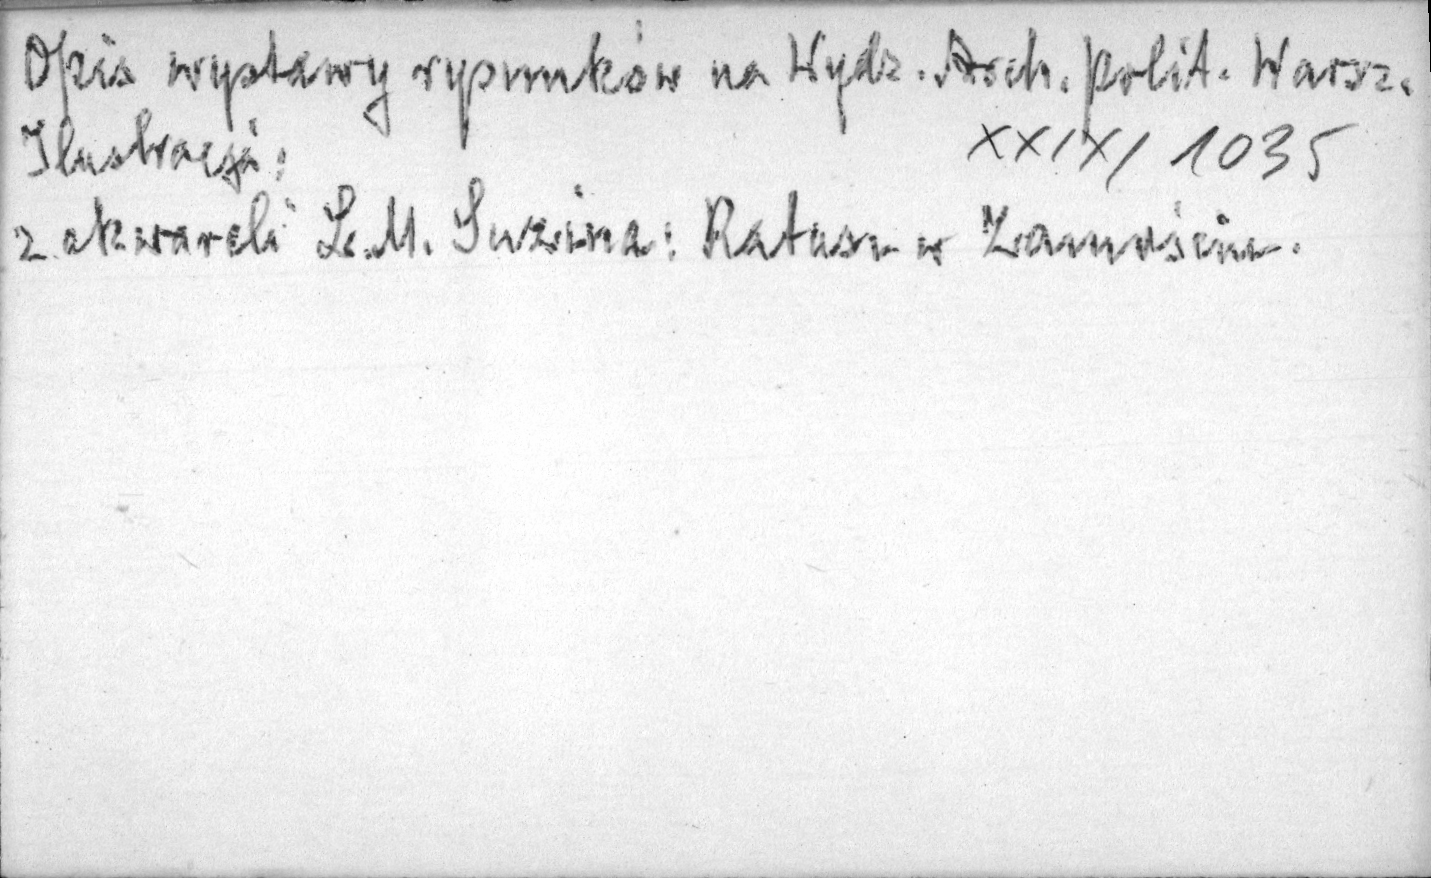 Opis wystawy rysunków na Wydz. Arch. Polit. Warsz.
Ilustracja: XXIX/ 1035
z akwareli L. M. Suzina: Ratusz w Zamościu.